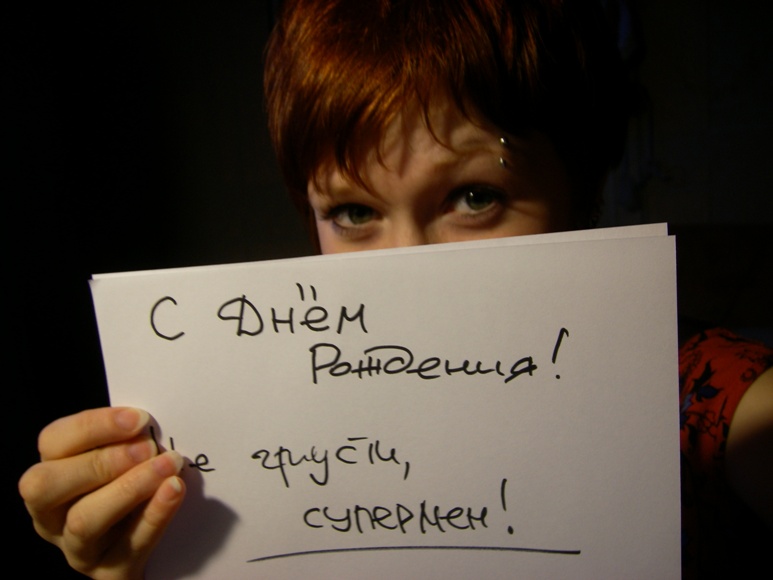 С Днём
Рождения!
Не грусти,
супермен!